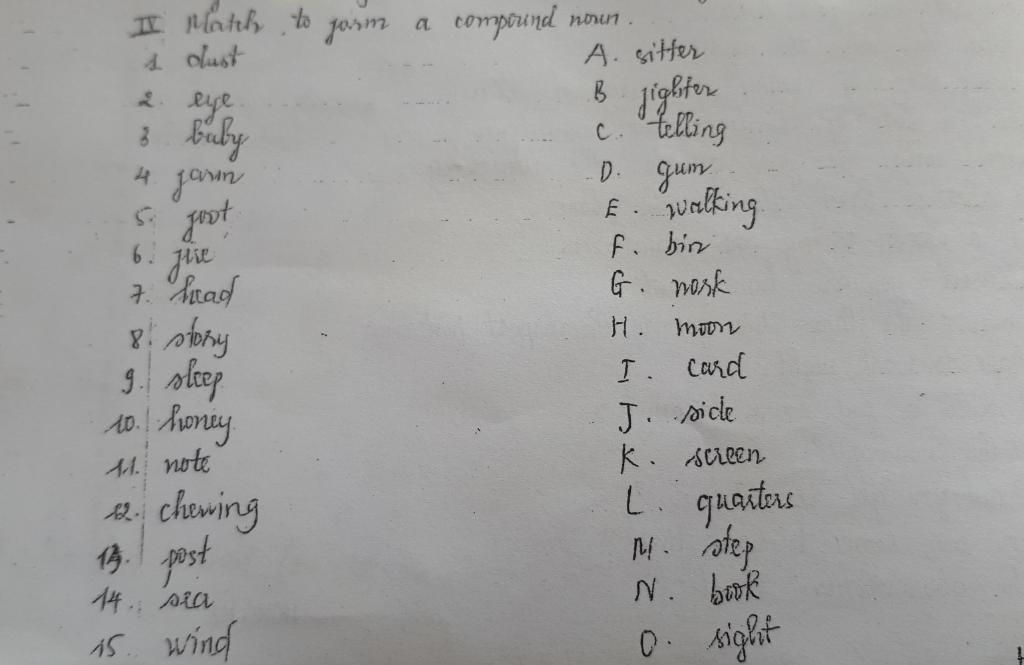 IV Match to form a compound noun.
1 dust A. sitter
2. eye B fighter
3 baby C. telling
4. farm D. gum
5. foot E. walking
6. fire F. bin
7. head G. work
8. story H. moon
9. sleep I. card
10. honey J. side
11. note K. screen
12. chewing L. quarters
13. post M. step
14. sea N. book
15. wind O. sight